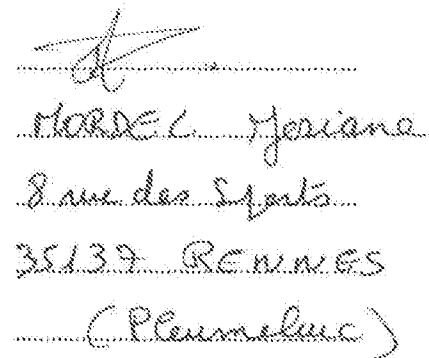 MORDEL Josiane
8 rue des Sports
35137 RENNES
(Pleumeleuc)